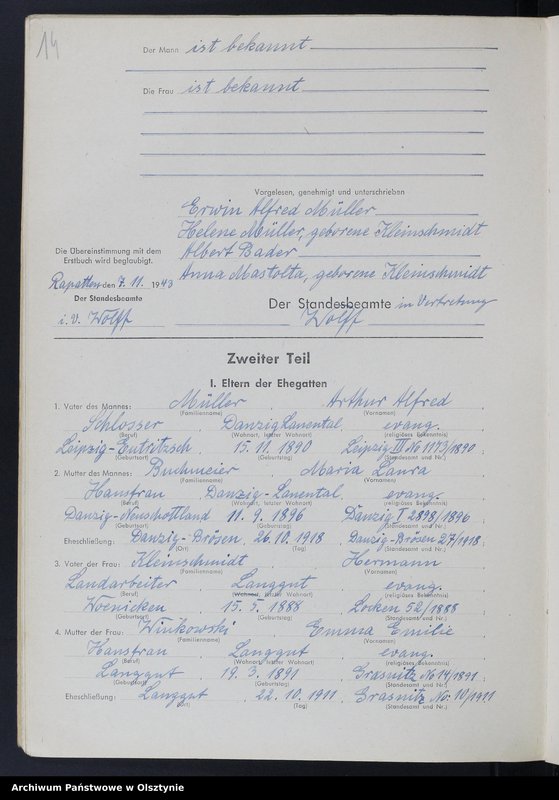 14
Der Mann ist bekannt
Die Frau ist bekannt
Vorgelesen, genehmigt und unterschrieben
Erwin Alfred Müller
Helene Müller, geborene Kleinschmidt
Albert Bader
Anna Mastolta, geborene Kleinschmidt
Die Übereinstimmung mit dem
Erstbuch wird beglaubigt.
Rapatten den 7. 11. 1943
Der Standesbeamte
i. V. Wolff
Der Standesbeamte in Vertretung
Wolff
Zweiter Teil
I. Eltern der Ehegatten
1. Vater des Mannes: Müller Arthur Alfred
(Familienname) (Vornamen)
Schlosser Danzig Lauental evang.
(Beruf) (Wohnort, letzter Wohnort) (religiöses Bekenntnis)
Leipzig-Eutritzsch 15. 11. 1890 Leipzig III No 1173/1890
(Geburtsort) (Geburtstag) (Standesamt und Nr.)
2. Mutter des Mannes: Buchmeier Maria Laura
(Familienname) (Vornamen)
Hausfrau Danzig-Lauental evang.
(Beruf) (Wohnort, letzter Wohnort) (religiöses Bekenntnis)
Danzig-Neuschottland 11. 9. 1896 Danzig I 2898/1896
(Geburtsort) (Geburtstag) (Standesamt und Nr.)
Eheschließung: Danzig-Brösen, 26. 10. 1918 Danzig-Brösen 27/1918
(Ort) (Tag) (Standesamt und Nr.)
3. Vater der Frau: Kleinschmidt Hermann
(Familienname) (Vornamen)
Landarbeiter Langgut evang.
(Beruf) (Wohnort, letzter Wohnort) (religiöses Bekenntnis)
Woenicken 15. 5. 1888 Locken 52/1888
(Geburtsort) (Geburtstag) (Standesamt und Nr.)
4. Mutter der Frau: Winkowski Emma Emilie
(Familienname) (Vornamen)
Hausfrau Langgut evang.
(Beruf) (Wohnort, letzter Wohnort) (religiöses Bekenntnis)
Langgut 19. 3. 1891 Grasnitz No 14/1891
(Geburtsort) (Geburtstag) (Standesamt und Nr.)
Eheschließung: Langgut 22. 10. 1911 Grasnitz No. 10/1911
(Ort) (Tag) (Standesamt und Nr.)
Archiwum Państwowe w Olsztynie